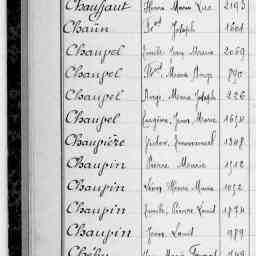 Chauffaut Pierre Marie Luc 2193
Chaün Fs.d Joseph 1601
Chaupel Emile Jean Marie 2069
Chaupel Marie Ange 890
Chaupel Ange Marie Joseph 226
Chaupel Eugène Jean Marie 1654
Chaupière Emmanuel 1348
Chaupin Pierre Marie 1512
Chaupin Léon Pierre Marie 1052
Chaupin Emile Pierre Louis 1874
Chaupin Jean Louis 989
Marie